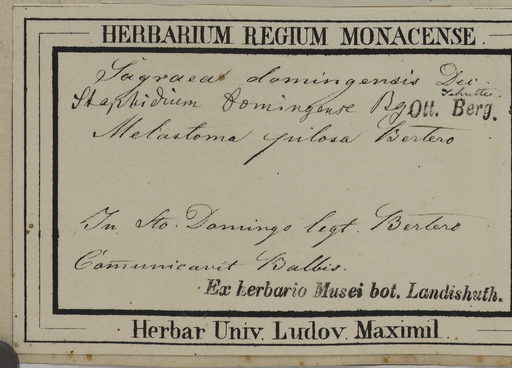 HERBARIUM REGIUM MONACENSE.
Sagraea domingensis Dec
Staphidium Domingense Bg Ott. Berg.
Melastoma pilosa Bertero
In Sto. Domingo legt. Bertero
Comunicavit Balbis.
Ex herbario Musei bot. Landishuth.
Herbar Univ. Ludov. Maximil.